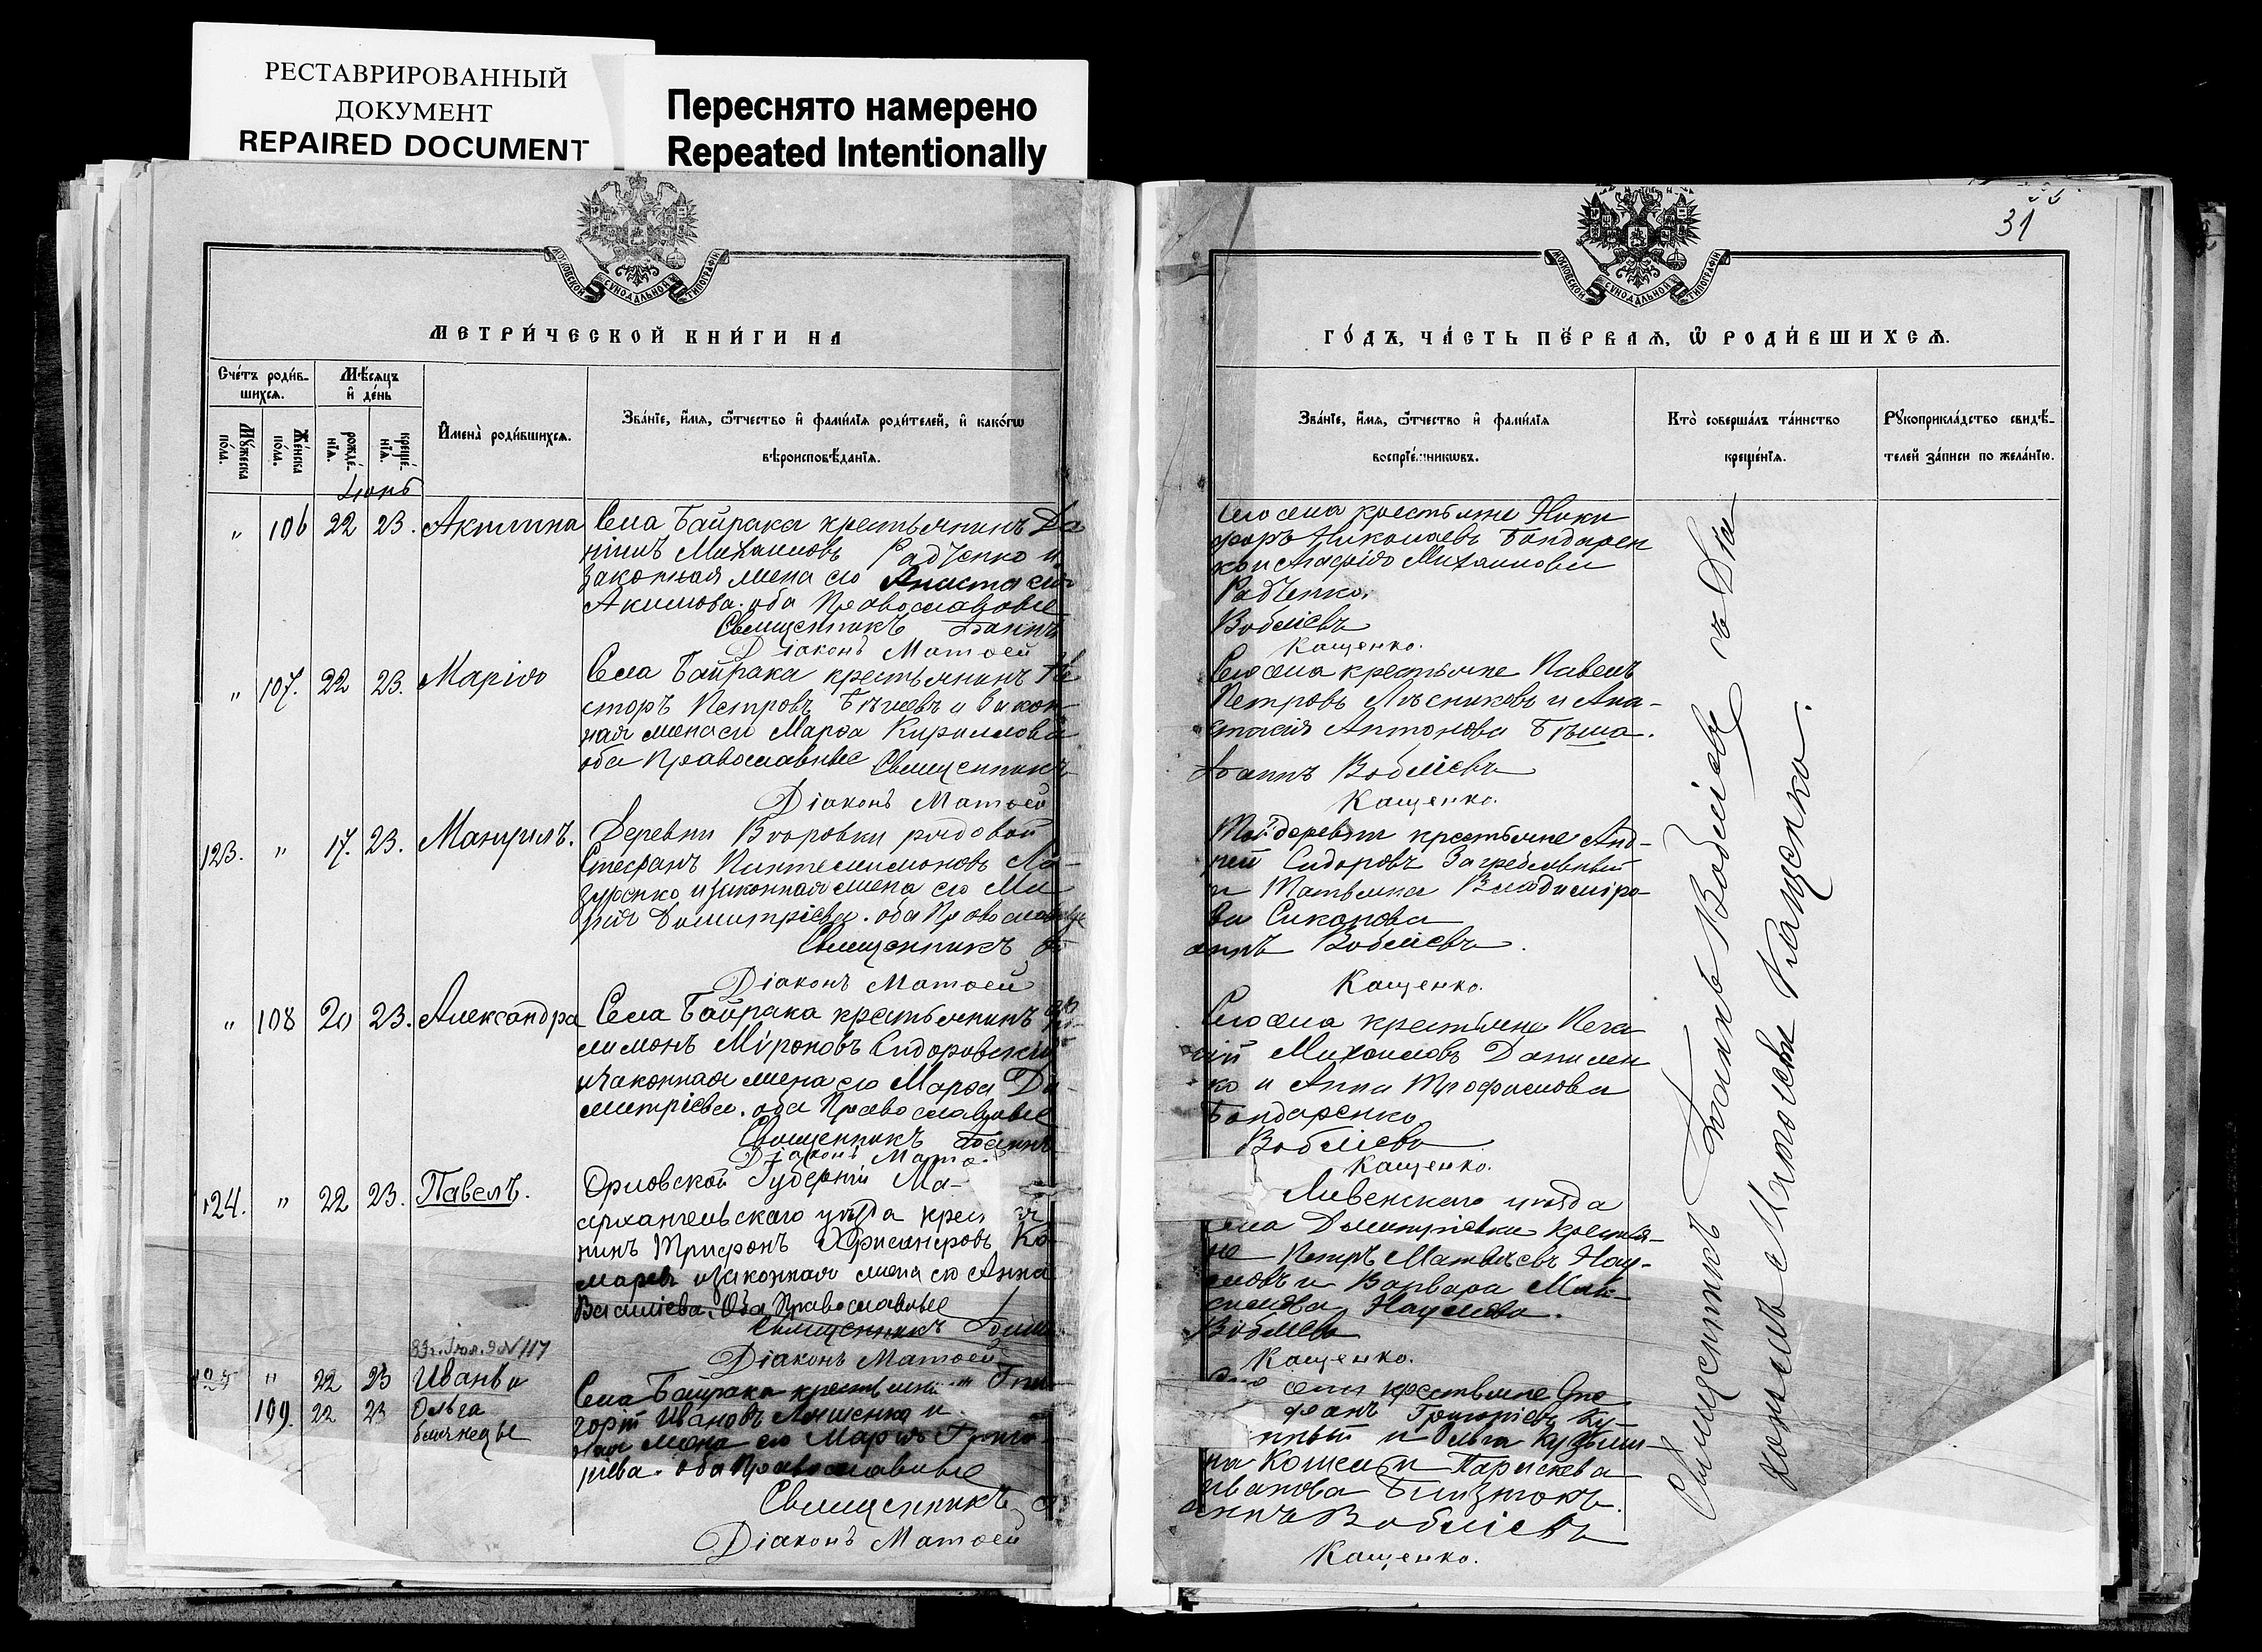 РЕСТАВРИРОВАННЫЙ
ДОКУМЕНТ
REPAIRED DOCUMENT
Переснято намерено
Repeated Intentionally
МОСКОВСКОЙ СУНОДАЛЬНОЙ ТИПОГРАФІИ
МЕТРИ́ЧЕСКОЙ КНИ́ГИ НА
Счетъ роди́в-
шихсѧ.
Мѣсяцъ
и де́нь
Му́жеска
по́ла.
Же́нска
по́ла.
рожде́-
нїѧ.
креще́-
нїѧ.
Имена̀ роди́вшихсѧ.
Зва́нїе, и́мѧ, ѻ҆́тчество и҆ фами́лїѧ роди́телей, и҆ како́гѡ
вѣроисповѣ́данїѧ.
Іюнь
" 106 22 23. Акилина
Села Байрака крестьянинъ Да
ніилъ Михаиловъ Радченко и
законная жена его Анастасія
Акимова. оба Православные
Священникъ Іоаннъ
Діаконъ Матѳей
" 107. 22 23. Марія
Села Байрака крестьянинъ Не
сторъ Петровъ и закон
ная жена его Марѳа Кириллова
оба Православные Священникъ
Діаконъ Матѳей
123. " 17. 23. Мануилъ.
Деревни рядовой
Стефанъ Пантелимоновъ Ла-
зуренко и законная жена его Ма
рія Димитріева. оба Православные
Священникъ Іо
Діаконъ Матѳей
" 108 20 23. Александра
Села Байрака крестьянинъ Фи
лимонъ Міроновъ Сидоровскій
и законная жена его Марѳа Ди-
митріева. оба Православные
Священникъ Іоаннъ
Діаконъ Матѳ
124. " 22 23. Павелъ.
Орловской Губерніи Ма-
архангельскаго уѣзда крес
нинъ Трифонъ Ко
маревъ и законная жена его Анна
Василіева. Оба Православные
Священникъ Іоанн
Діаконъ Матѳей
83 г. Іюл. 9 N 117
125 " 22 23 Иванъ и
109. 22 23 Ольга
близнецы
Села Байрака крестьянинъ Гри
горій Ивановъ Ляшенко и
ная жена его Марѳа Григо-
рьева. оба Православные
Священникъ Іо
Діаконъ Матѳей
31
МОСКОВСКОЙ СУНОДАЛЬНОЙ ТИПОГРАФІИ
ГО́ДЪ, ЧА́СТЬ ПЕ́РВАѦ, Ѽ РОДИ́ВШИХСѦ.
Зва́нїе, и́мѧ, ѻ҆́тчество и҆ фами́лїѧ
воспрїе́мникѡвъ.
Кто̀ соверша́лъ та́инство
креще́нїѧ.
Рꙋкоприкла́дство свидѣ́-
телей за́писи по жела́нїю.
Сего села крестьяне Ники
форъ Николаевъ Бондарен
ко и Михаилова
Радченко.
Воблиевъ
Кащенко.
Сего села крестьяне Павелъ
Петровъ Лѣсниковъ и Ана-
стасія Антонова
Іоаннъ Воблиевъ
Кащенко.
Той деревни крестьяне Анд-
рей Сидоровъ Загребельный
и Татьяна Владиміро-
ва Сиканова
аннъ Воблиевъ.
Кащенко.
Сего села крестьяне
Михаиловъ Данилен
ко и Анна Трофимова
Бондаренко
Воблиевъ
Кащенко.
Ливенскаго уѣзда
села Димитріевки крестья-
не Петръ Матвѣевъ Нау-
мовъ и Варвара Мак-
симова Наумова.
Воблиевъ
Кащенко.
села крестьяне Сте
фанъ Григоріевъ Ку-
и Ольга Кузьми-
на и Параскева
Иванова
аннъ Воблиевъ
Кащенко.
Священникъ Іоаннъ Воблиевъ съ Діа
кономъ Матѳеемъ Кащенко.